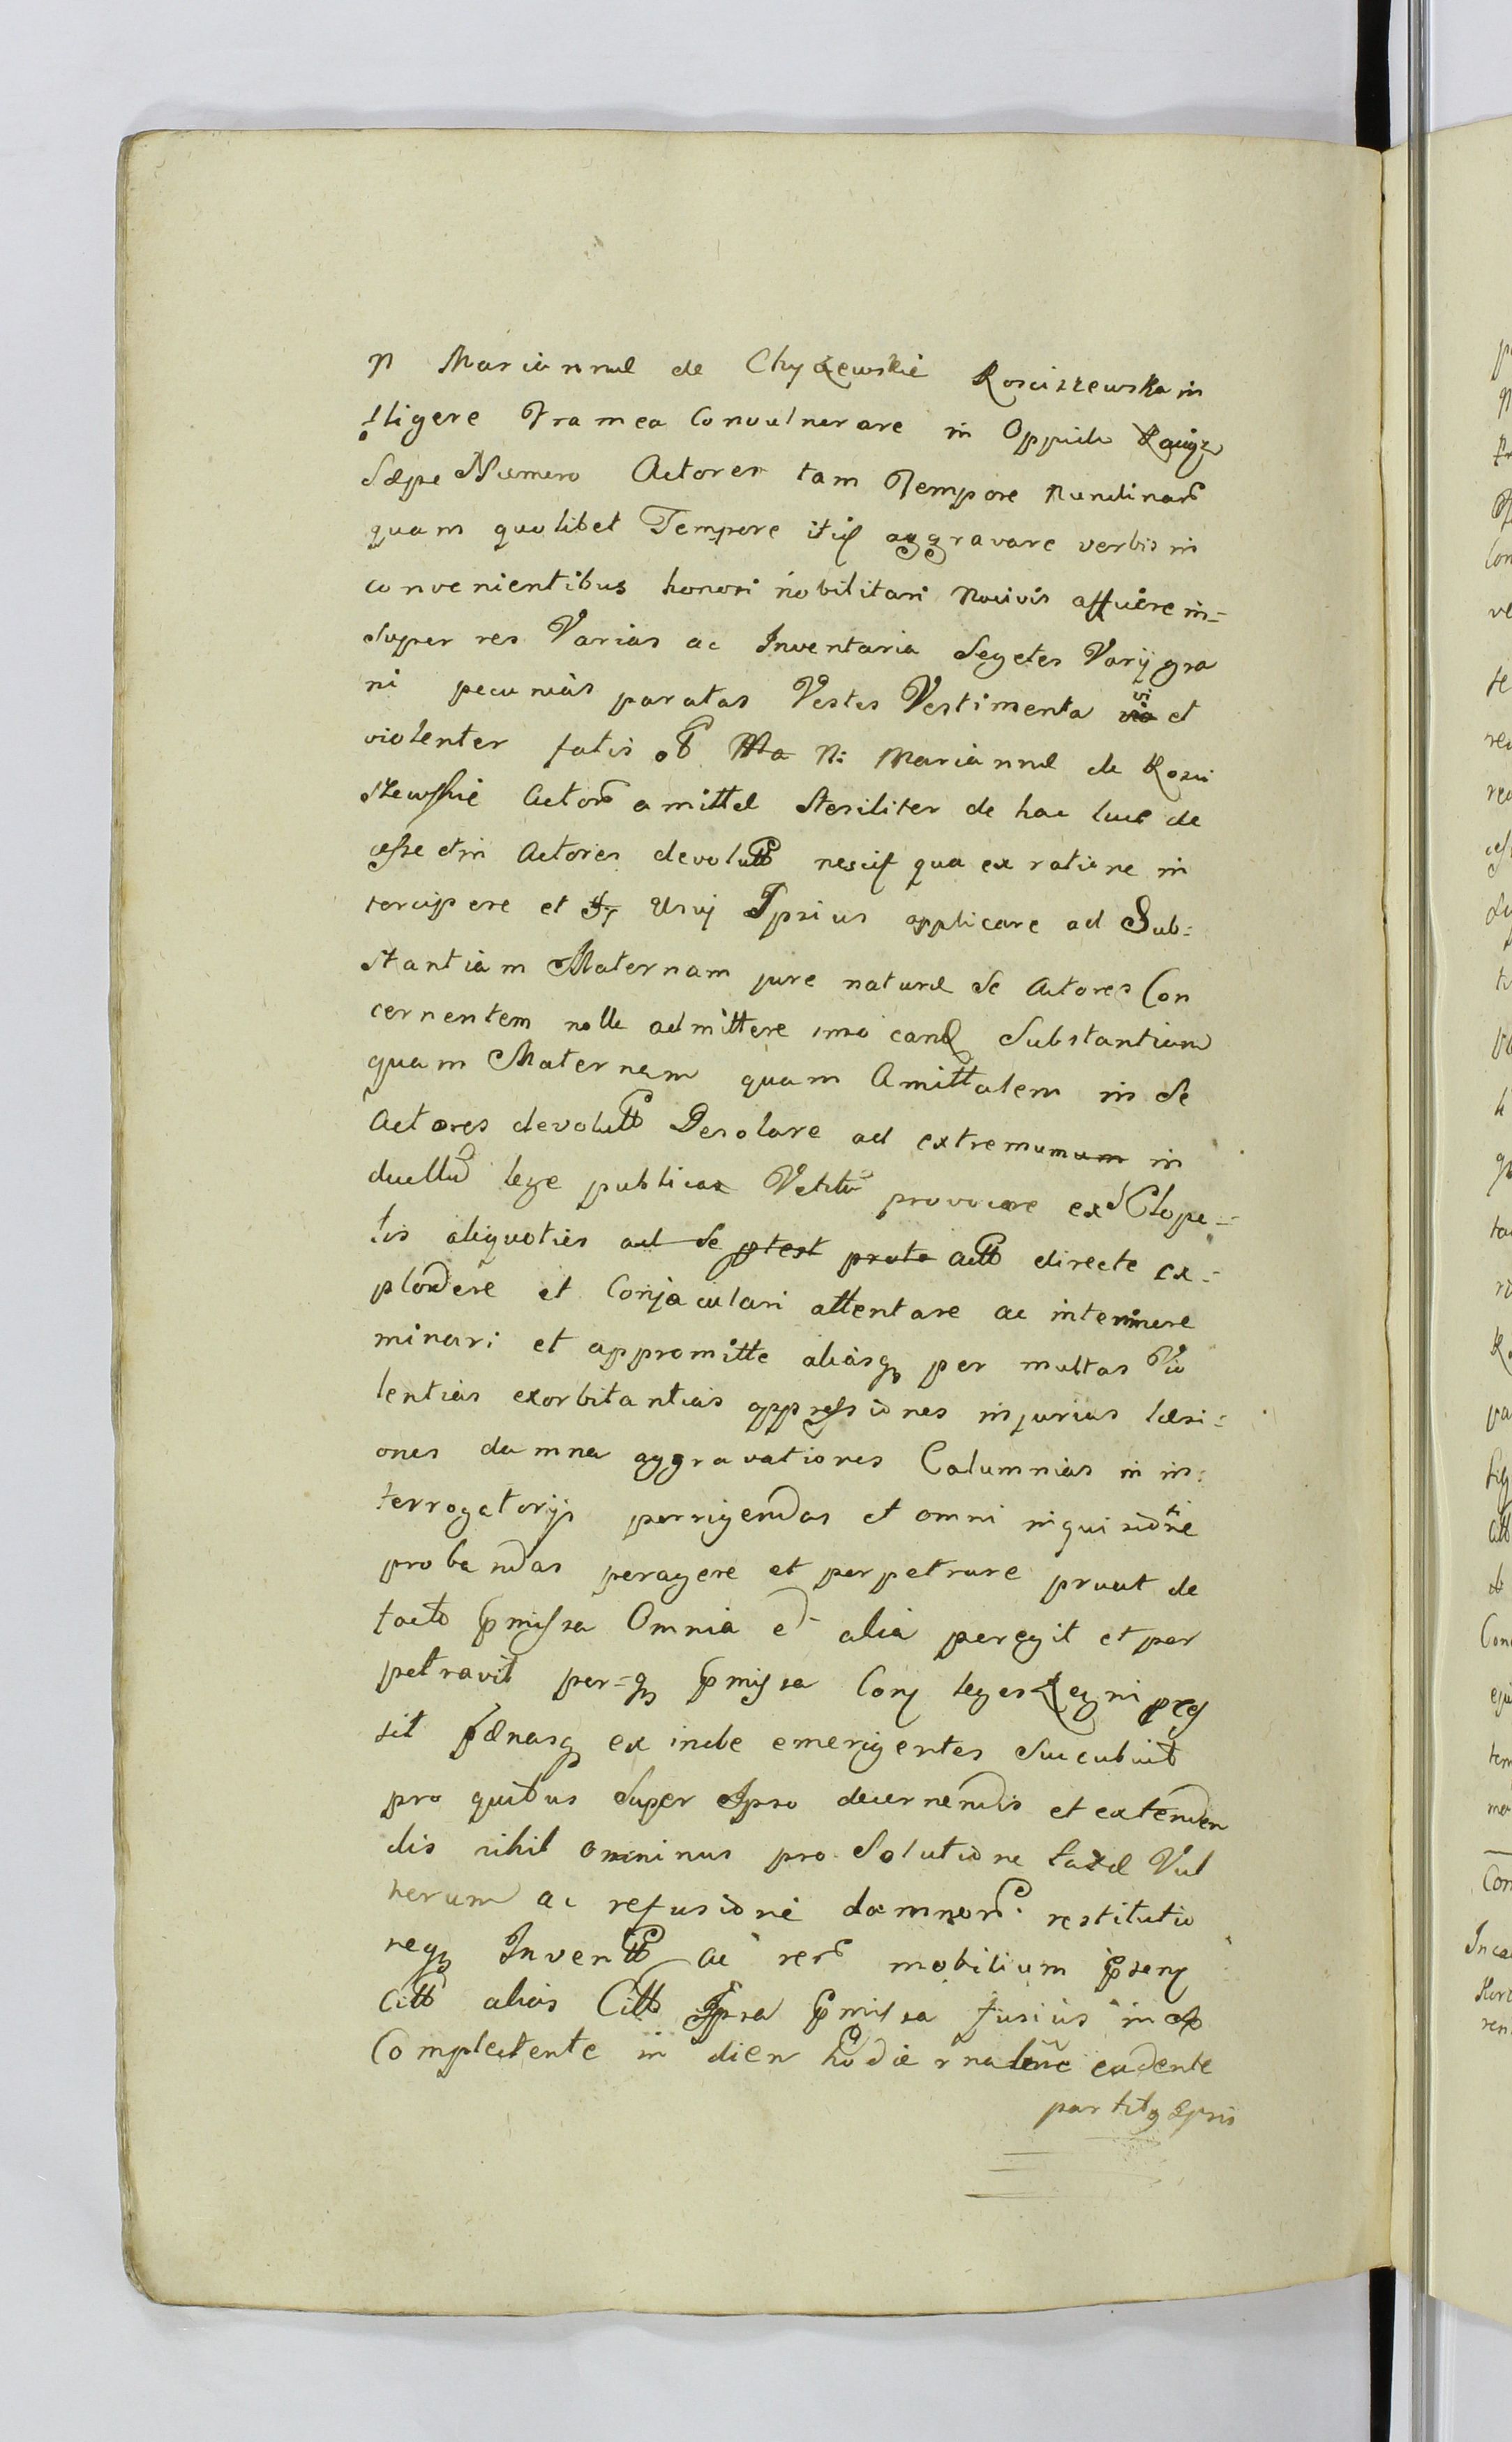 N Mariannæ de Chyzewskie Kosciszewska in
fligere Framea Convulnerare in Oppido Raciąz
Sæpe Numero Actores tam Tempore Nundinar
quam quolibet Tempore itis aggravare verbis in
convenientibus honori nobilitari Nocivis afficere in=
super res Varias ac Inventaria Segetes Varij gra
ni pecunias paratas Vestes Vestimenta via vi et
violenter fatis Ma N: Mariannæ de Kosci
szewskie Actor amittæ Steriliter de hac luce de
cesse et in Actores devolut nescit qua ex ratione in
tercipere et Usuj Ipsius applicare ad Sub=
stantiam Maternam jure naturæ se Actores Con
cernentem nolle admittere imo eand Substantiam
quam Maternam quam Amittalem in se
Actores devolutt Desolare ad extremumum in
duellu lege publica Vetitu provocare ex Sclope=
tis aliquoties ad se ptest prote actt directe ex=
plodere et Conjaculari attentare ac interimere
minari et appromitte aliasq per multas Vio
lentias exorbitantias oppressiones injurias læsi=
ones damna aggravationes Calumnias in in=
terrogatorijs porrigendas et omni inquisitne
probandas peragere et perpetrare prout de
facto pmissa Omnia et alia peregit et per
petravit per=q pmissa Conj leges Regni
sit pænasq ex inde emerigentes Succubuit
pro quibus Super Ipso decernendis et extenden
dis nihil ominus pro Solutione taxæ Vul
nerum ac refusione damnor restitutio
neq Inventt ac rer mobilium
Citt alias Citt Ipsa pmissa fusius in se
Complectente in dien hodierna cadente
partibq Ipsis